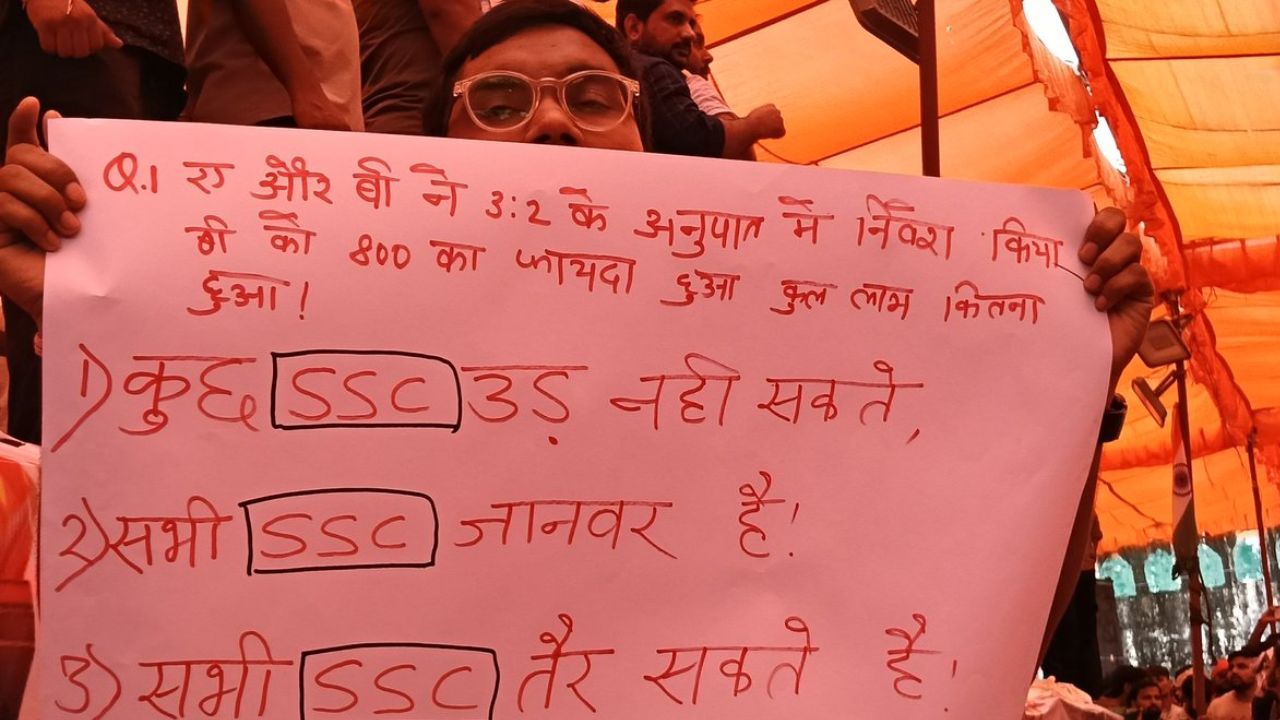 Q.1 ए और बी ने 3:2 के अनुपात में निवेश किया
बी को 800 का फायदा हुआ कुल लाभ कितना
हुआ!
1) कुछ SSC उड़ नही सकते,
2) सभी SSC जानवर है!
3) सभी SSC तैर सकते है!